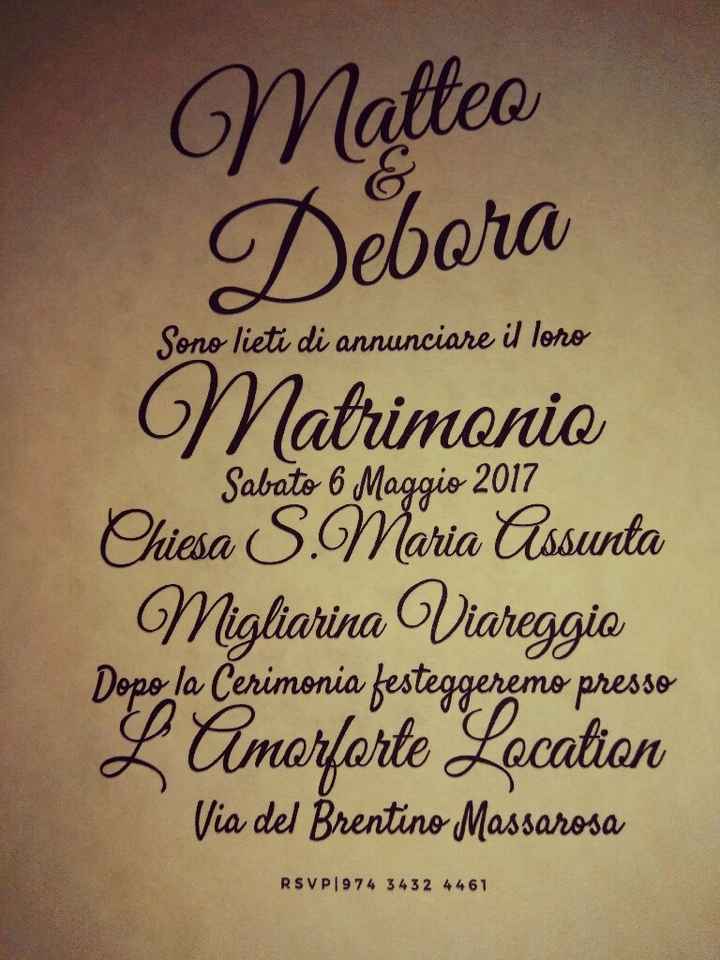 Matteo
&
Debora
Sono lieti di annunciare il loro
Matrimonio
Sabato 6 Maggio 2017
Chiesa S.Maria Assunta
Migliarina Viareggio
Dopo la Cerimonia festeggeremo presso
L' Amorforte Location
Via del Brentino Massarosa
RSVP|974 3432 4461